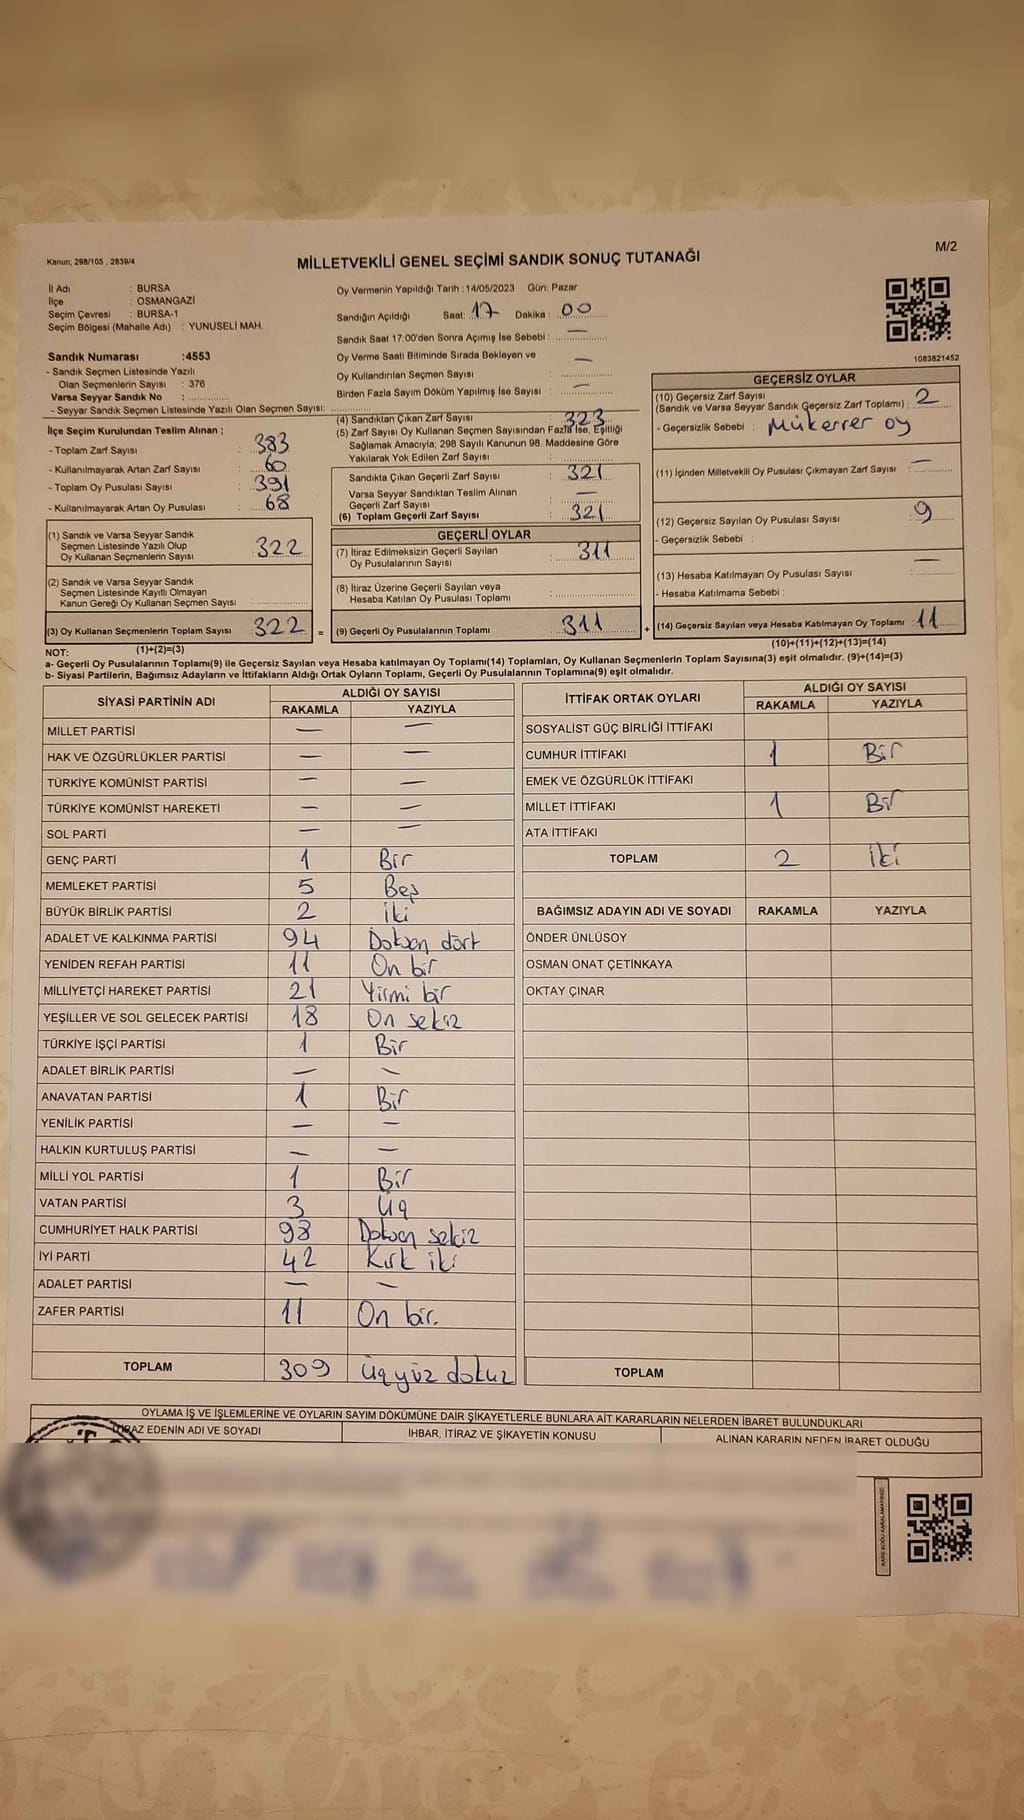 M/2
Kanun; 298/105 , 2839/4
MİLLETVEKİLİ GENEL SEÇİMİ SANDIK SONUÇ TUTANAĞI
İl Adı : BURSA
İlçe : OSMANGAZİ
Seçim Çevresi : BURSA-1
Seçim Bölgesi (Mahalle Adı) : YUNUSELİ MAH.
Sandık Numarası :4553
- Sandık Seçmen Listesinde Yazılı
Olan Seçmenlerin Sayısı : 376
Varsa Seyyar Sandık No :
- Seyyar Sandık Seçmen Listesinde Yazılı Olan Seçmen Sayısı:
İlçe Seçim Kurulundan Teslim Alınan ;
- Toplam Zarf Sayısı : 383
- Kullanılmayarak Artan Zarf Sayısı : 60
- Toplam Oy Pusulası Sayısı : 391
- Kullanılmayarak Artan Oy Pusulası : 68
(1) Sandık ve Varsa Seyyar Sandık
Seçmen Listesinde Yazılı Olup
Oy Kullanan Seçmenlerin Sayısı : 322
(2) Sandık ve Varsa Seyyar Sandık
Seçmen Listesinde Kayıtlı Olmayan
Kanun Gereği Oy Kullanan Seçmen Sayısı :
(3) Oy Kullanan Seçmenlerin Toplam Sayısı 322 =
(1)+(2)=(3)
Oy Vermenin Yapıldığı Tarih :14/05/2023 Gün: Pazar
Sandığın Açıldığı Saat: 17 Dakika : 00
Sandık Saat 17:00'den Sonra Açımış İse Sebebi : —
Oy Verme Saati Bitiminde Sırada Bekleyen ve
Oy Kullandırılan Seçmen Sayısı : —
Birden Fazla Sayım Döküm Yapılmış İse Sayısı : —
(4) Sandıktan Çıkan Zarf Sayısı : 323
(5) Zarf Sayısı Oy Kullanan Seçmen Sayısından Fazla İse, Eşitliği
Sağlamak Amacıyla; 298 Sayılı Kanunun 98. Maddesine Göre
Yakılarak Yok Edilen Zarf Sayısı :
Sandıkta Çıkan Geçerli Zarf Sayısı : 321
Varsa Seyyar Sandıktan Teslim Alınan
Geçerli Zarf Sayısı : —
(6) Toplam Geçerli Zarf Sayısı : 321
GEÇERLİ OYLAR
(7) İtiraz Edilmeksizin Geçerli Sayılan
Oy Pusulasının Sayısı : 311
(8) İtiraz Üzerine Geçerli Sayılan veya
Hesaba Katılan Oy Pusulası Toplamı :
(9) Geçerli Oy Pusulalarının Toplamı : 311 +
1083821452
GEÇERSİZ OYLAR
(10) Geçersiz Zarf Sayısı
(Sandık ve Varsa Seyyar Sandık Geçersiz Zarf Toplamı) : 2
- Geçersizlik Sebebi : Mükerrer oy
(11) İçinden Milletvekili Oy Pusulası Çıkmayan Zarf Sayısı : —
(12) Geçersiz Sayılan Oy Pusulası Sayısı : 9
- Geçersizlik Sebebi :
(13) Hesaba Katılmayan Oy Pusulası Sayısı : —
- Hesaba Katılmama Sebebi :
(14) Geçersiz Sayılan veya Hesaba Katılmayan Oy Toplamı : 11
(10)+(11)+(12)+(13)=(14)
NOT:
a- Geçerli Oy Pusulalarının Toplamı(9) ile Geçersiz Sayılan veya Hesaba katılmayan Oy Toplamı(14) Toplamları, Oy Kullanan Seçmenlerin Toplam Sayısına(3) eşit olmalıdır. (9)+(14)=(3)
b- Siyasi Partilerin, Bağımsız Adayların ve İttifakların Aldığı Ortak Oyların Toplamı, Geçerli Oy Pusulalarının Toplamına(9) eşit olmalıdır.
SİYASİ PARTİNİN ADI ALDIĞI OY SAYISI
RAKAMLA YAZIYLA
MİLLET PARTİSİ — —
HAK VE ÖZGÜRLÜKLER PARTİSİ — —
TÜRKİYE KOMÜNİST PARTİSİ — —
TÜRKİYE KOMÜNİST HAREKETİ — —
SOL PARTİ — —
GENÇ PARTİ 1 Bir
MEMLEKET PARTİSİ 5 Beş
BÜYÜK BİRLİK PARTİSİ 2 İki
ADALET VE KALKINMA PARTİSİ 94 Doksan dört
YENİDEN REFAH PARTİSİ 11 On bir
MİLLİYETÇİ HAREKET PARTİSİ 21 Yirmi bir
YEŞİLLER VE SOL GELECEK PARTİSİ 18 On sekiz
TÜRKİYE İŞÇİ PARTİSİ 1 Bir
ADALET BİRLİK PARTİSİ — —
ANAVATAN PARTİSİ 1 Bir
YENİLİK PARTİSİ — —
HALKIN KURTULUŞ PARTİSİ — —
MİLLİ YOL PARTİSİ 1 Bir
VATAN PARTİSİ 3 Üç
CUMHURİYET HALK PARTİSİ 98 Doksan sekiz
İYİ PARTİ 42 Kırk iki
ADALET PARTİSİ — —
ZAFER PARTİSİ 11 On bir.
TOPLAM 309 Üçyüz dokuz
İTTİFAK ORTAK OYLARI ALDIĞI OY SAYISI
RAKAMLA YAZIYLA
SOSYALİST GÜÇ BİRLİĞİ İTTİFAKI
CUMHUR İTTİFAKI 1 Bir
EMEK VE ÖZGÜRLÜK İTTİFAKI
MİLLET İTTİFAKI 1 Bir
ATA İTTİFAKI
TOPLAM 2 İki
BAĞIMSIZ ADAYIN ADI VE SOYADI RAKAMLA YAZIYLA
ÖNDER ÜNLÜSOY
OSMAN ONAT ÇETİNKAYA
OKTAY ÇINAR
TOPLAM
OYLAMA İŞ VE İŞLEMLERİNE VE OYLARIN SAYIM DÖKÜMÜNE DAİR ŞİKAYETLERLE BUNLARA AİT KARARLARIN NELERDEN İBARET BULUNDUKLARI
İTİRAZ EDENİN ADI VE SOYADI İHBAR, İTİRAZ VE ŞİKAYETİN KONUSU ALINAN KARARIN NEDEN İBARET OLDUĞU
KARE KODU KARALAMAYINIZ!